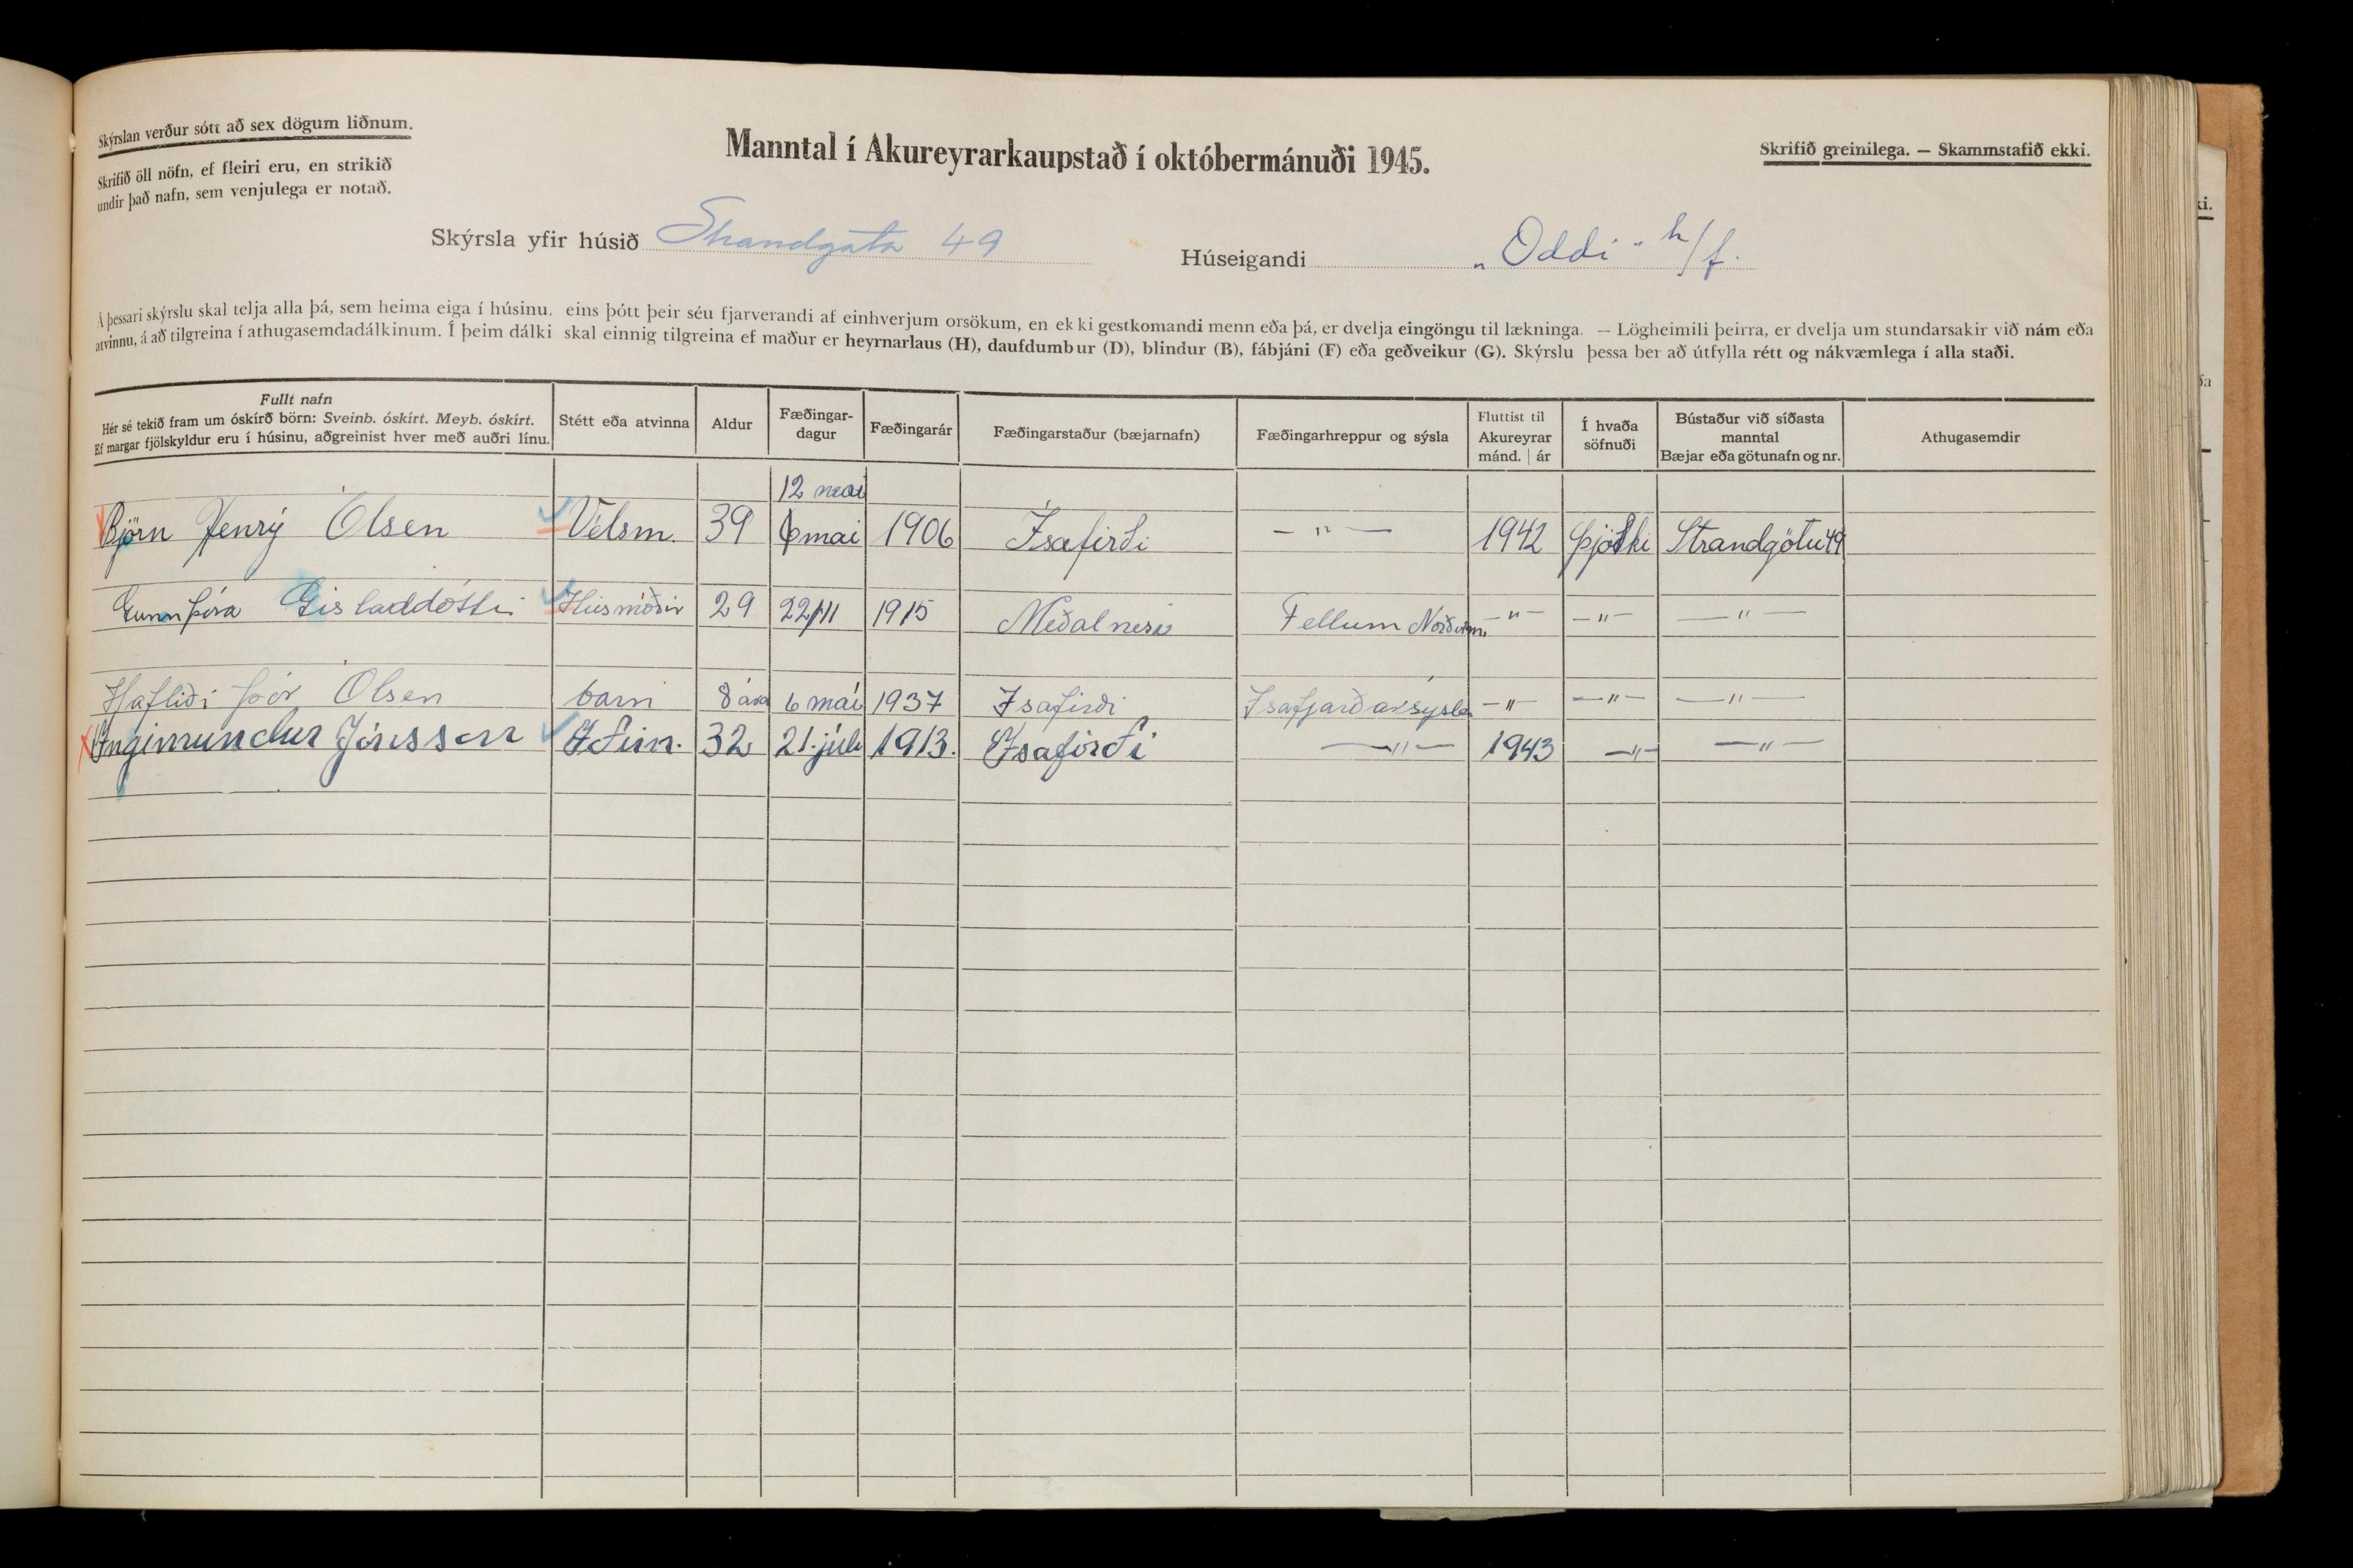 Skýrslan verður sótt að sex dögum liðnum.
Skrifið öll nöfn, ef fleiri eru, en strikið
undir það nafn, sem venjulega er notað.
Manntal í Akureyrarkaupstað í októbermánuði 1945.
Skrifið greinilega. — Skammstafið ekki.
Skýrsla yfir húsið Strandgata 49
Húseigandi „Oddi" h/f.
Á þessari skýrslu skal telja alla þá, sem heima eiga í húsinu, eins þótt þeir séu fjarverandi af einhverjum orsökum, en ekki gestkomandi menn eða þá, er dvelja eingöngu til lækninga. — Lögheimili þeirra, er dvelja um stundarsakir við nám eða
atvinnu, á að tilgreina í athugasemdadálkinum. Í þeim dálki skal einnig tilgreina ef maður er heyrnarlaus (H), daufdumbur (D), blindur (B), fábjáni (F) eða geðveikur (G). Skýrslu þessa ber að útfylla rétt og nákvæmlega í alla staði.
Fullt nafn
Hér sé tekið fram um óskírð börn: Sveinb. óskírt. Meyb. óskírt.
Ef margar fjölskyldur eru í húsinu, aðgreinist hver með auðri línu.
Stétt eða atvinna
Aldur
Fæðingar-
dagur
Fæðingarár
Fæðingarstaður (bæjarnafn)
Fæðingarhreppur og sýsla
Fluttist til
Akureyrar
mánd. | ár
Í hvaða
söfnuði
Bústaður við síðasta
manntal
Bæjar eða götunafn og nr.
Athugasemdir
12 mai
Björn Henrý Olsen Vélsm. 39 6 mai 1906 Ísafirði — " — 1942 Þjóðki Strandgötu 49
Gunnþóra Gísladdóttir Húsmóðir 29 22/11 1915 Meðalnesi Fellum Norðurm. — " — — " — — " —
Hafliði Þór Olsen barn 8 ára 6 maí 1937 Ísafirði Ísafjarðarsýsla — " — — " — — " —
Ingimundur Jónsson 32 21. júlí 1913. Ísafirði — " — 1943 — " — — " —